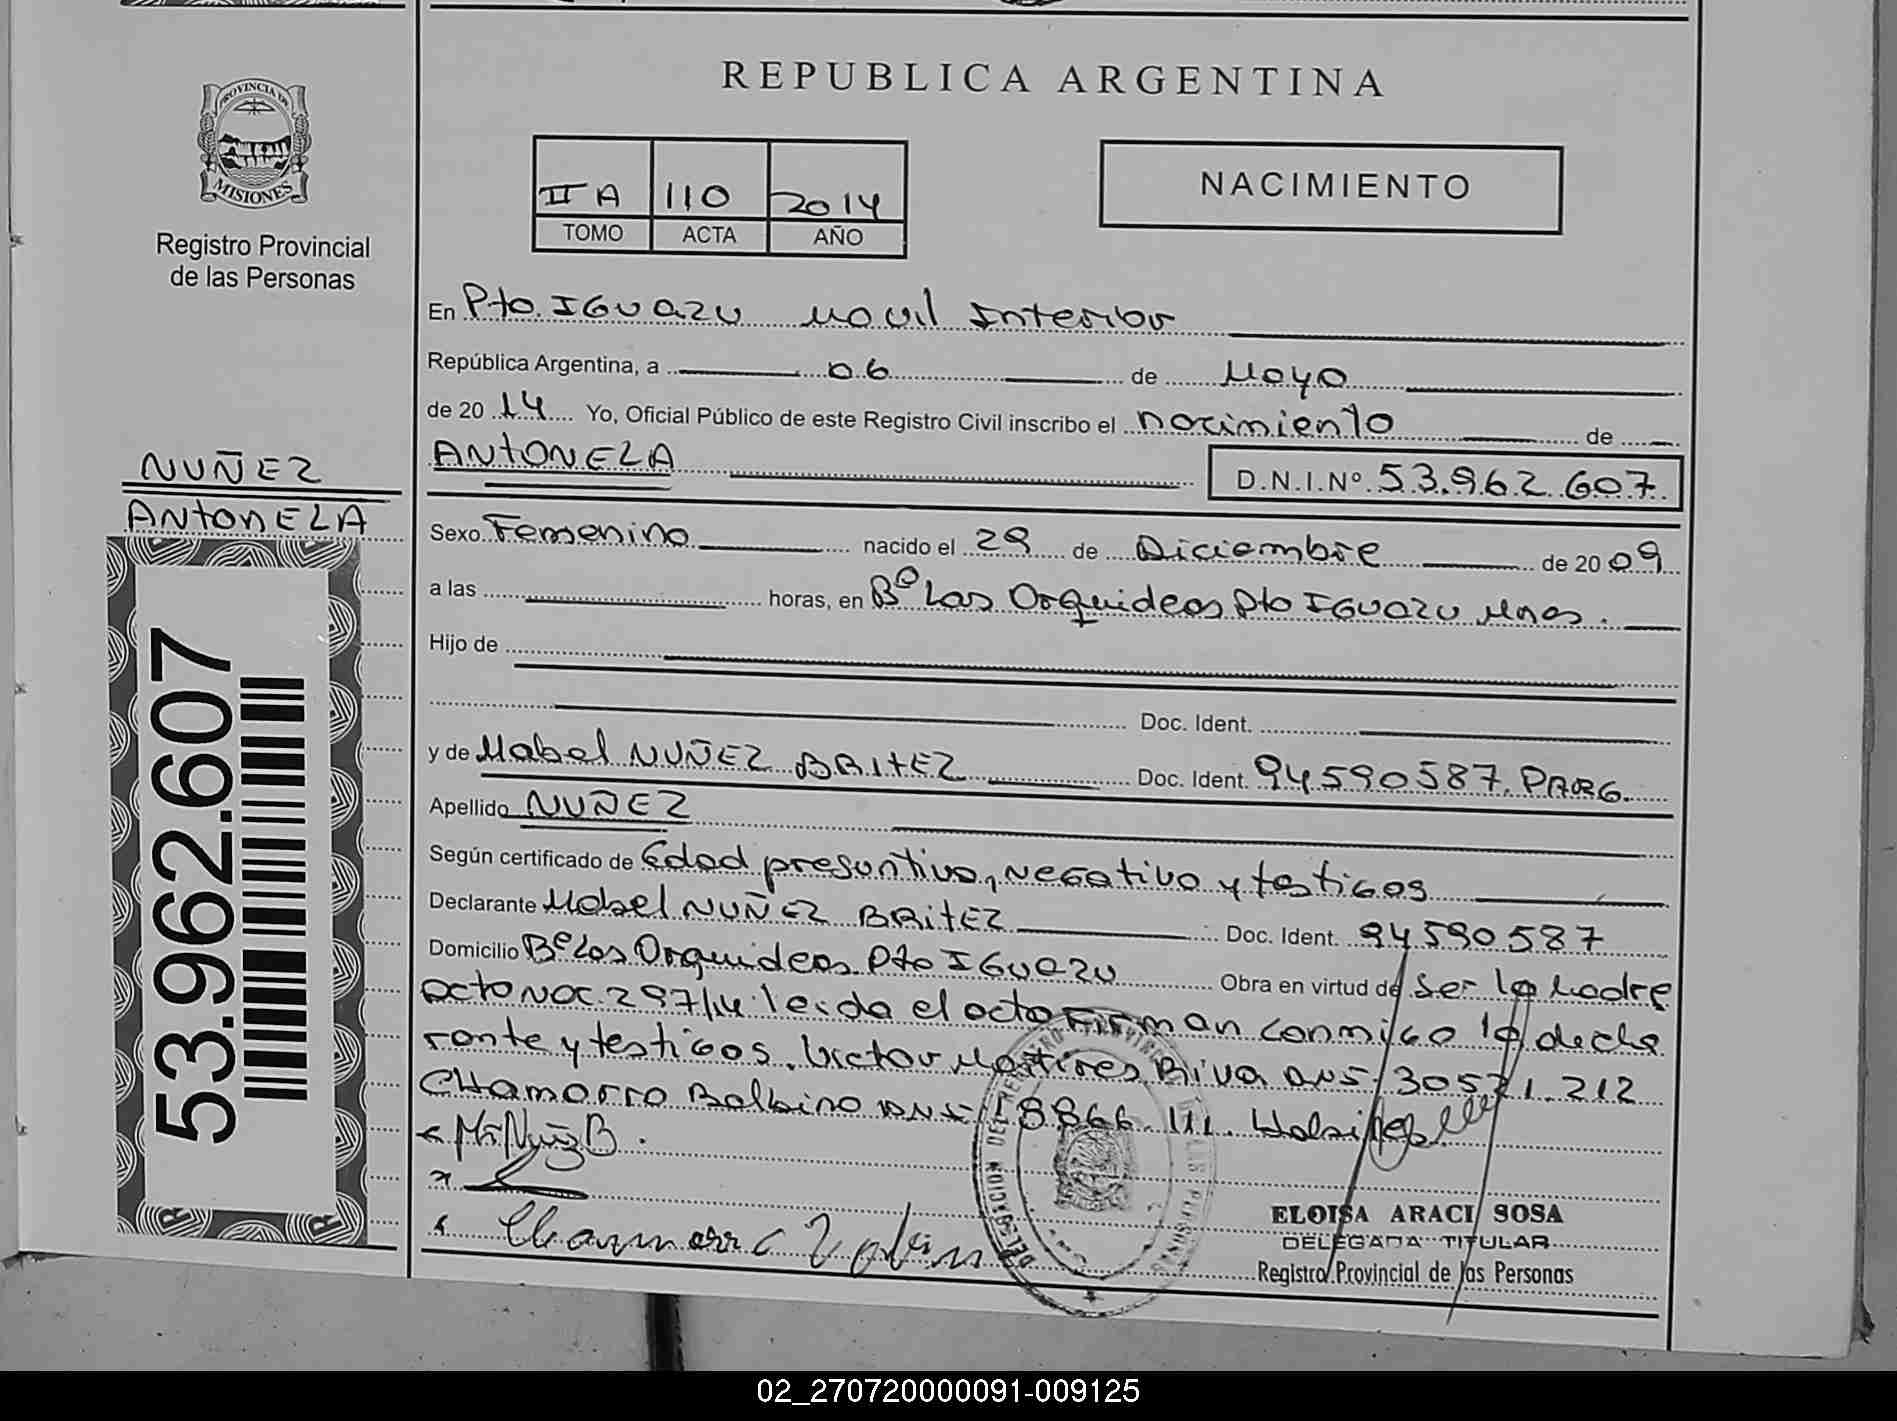 REPUBLICA ARGENTINA
PROVINCIA DE
MISIONES
Registro Provincial
de las Personas
II A 110 2014
TOMO ACTA AÑO
NACIMIENTO
En Pto. IGUAZU Movil Interior
República Argentina, a 06 de Mayo
de 2014 Yo, Oficial Público de este Registro Civil inscribo el nacimiento de
ANTONELA D.N.I.Nº 53.962.607.
NUÑEZ
ANTONELA
53.962.607
Sexo Femenino nacido el 29 de Diciembre de 2009
a las horas, en Bº Las Orquideas Pto IGUAZU Mnes.
Hijo de
Doc. Ident.
y de Mabel NUÑEZ BRITEZ Doc. Ident. 94590587. PARG.
Apellido NUÑEZ
Según certificado de Edad presuntiva, negativo y testigos
Declarante Mabel NUÑEZ BRITEZ Doc. Ident. 94590587
Domicilio Bº Las Orquideas Pto IGUAZU Obra en virtud de ser la Madre
acto NAC. 297/14. leida el acta FIRMAN conmigo la decla
rante y testigos. Victor Martires Riva DNI 30571.212
CHAMORRO Balbino DNI 18866.111.
ELOISA ARACI SOSA
DELEGADA TITULAR
Registro Provincial de las Personas
02_270720000091-009125